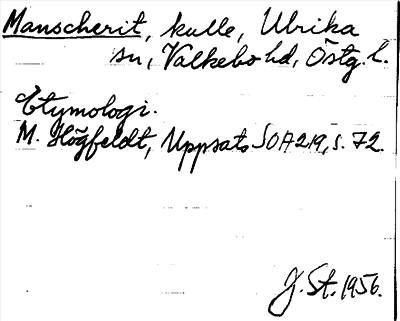 Manscherit, kulle, Ulrika
sn, Valkebo hd, Östg. l.
Etymologi.
M. Högfeldt, Uppsats SOA 219, s. 72.
J. St. 1956.